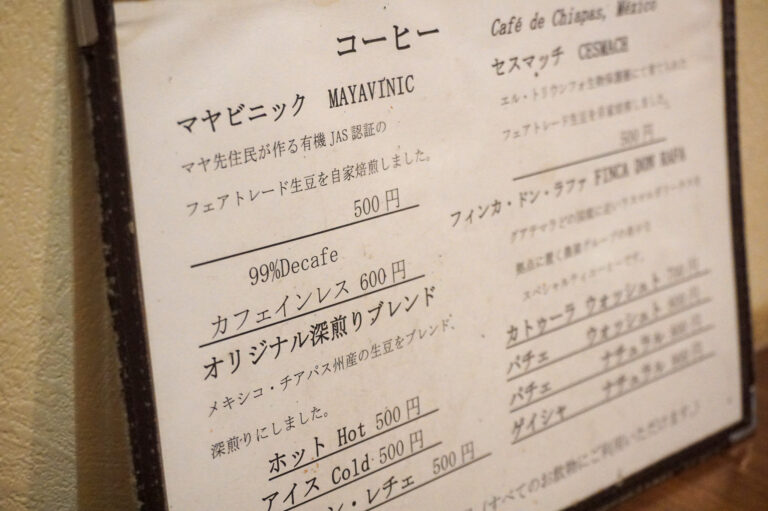 コーヒー
マヤビニック MAYAVINIC
マヤ先住民が作る有機JAS認証の
フェアトレード生豆を自家焙煎しました。
500円
99%Decafe
カフェインレス 600円
オリジナル深煎りブレンド
メキシコ・チアパス州産の生豆をブレンド、
深煎りにしました。
ホット Hot 500円
アイス Cold 500円
ン・レチェ 500円
Café de Chiapas, México
セスマッチ CESMACH
エル・トリウンフォ生物保護圏にて育てられた
フェアトレード生豆を自家焙煎しました。
500円
フィンカ・ドン・ラファ FINCA DON RAFA
グアテマラとの国境に近い
拠点に置く農業グループの
スペシャルティコーヒーです。
カトゥーラ ウォッシュト 700円
パチェ ウォッシュト 円
パチェ ナチュラル 円
ゲイシャ ナチュラル 円
(すべてのお飲物にご利用いただけます。)